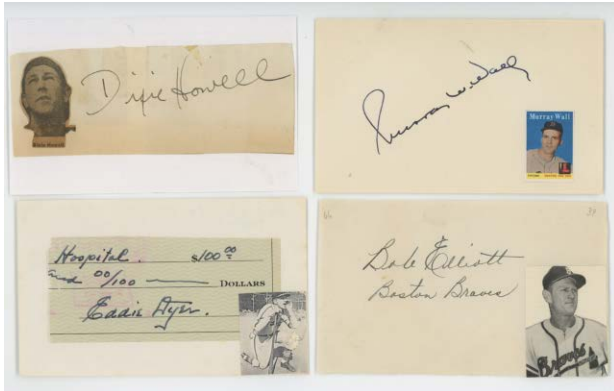 Dixie Howell
Dixie Howell
Murray W. Wall
Murray Wall
Hospital. $100 00
and 00/100 DOLLARS
Eddie Dyer.
Bob Elliott
Boston Braves
Braves